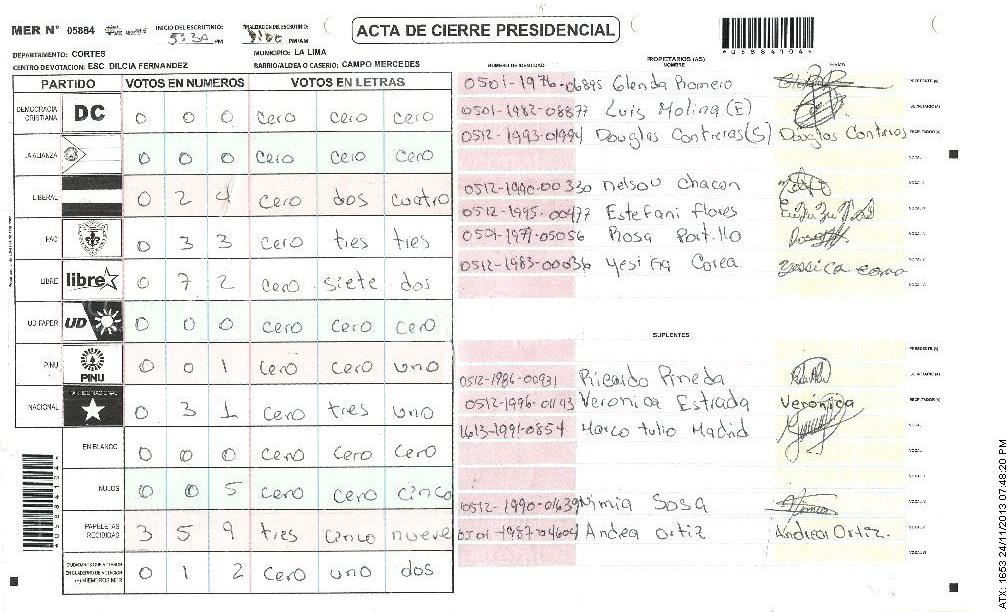 MER Nº 05884 INICIO DEL ESCRUTINIO: 5:30 PM FINALIZACION DEL ESCRUTINIO: PM/AM
ACTA DE CIERRE PRESIDENCIAL
DEPARTAMENTO: CORTES MUNICIPIO: LA LIMA
CENTRO DE VOTACION: ESC. DILCIA FERNANDEZ BARRIO/ALDEA O CASERIO: CAMPO MERCEDES
PARTIDO VOTOS EN NUMEROS VOTOS EN LETRAS
DEMOCRACIA CRISTIANA DC 0 0 0 cero cero cero
LA ALIANZA 0 0 0 cero cero cero
LIBERAL 0 2 4 cero dos cuatro
PAC 0 3 3 cero tres tres
LIBRE libre 0 7 2 cero siete dos
UD-FAPER UD 0 0 0 cero cero cero
PINU PINU 0 0 1 cero cero uno
NACIONAL 0 3 1 cero tres uno
EN BLANCO 0 0 0 cero cero cero
NULOS 0 0 5 cero cero cinco
PAPELETAS RECIBIDAS 3 5 9 tres cinco nueve
0 1 2 cero uno dos
PROPIETARIOS (AS)
NUMERO DE IDENTIDAD NOMBRE FIRMA
0501-1976-06895 Glenda Romero
0501-1982-08877 Luis Molina (E)
0512-1993-01994 Douglas Contreras(S) Douglas Contreras
0512-1990-00330 Nelson Chacon
0512-1995-00477 Estefani flores
0501-1977-05056 Rosa Portillo
0512-1983-00036 Yesica Corea
SUPLENTES
0512-1986-00931 Ricardo Pineda
0512-1996-01143 Veronica Estrada Verónica
1613-1991-0854 Marco tulio Madrid
0512-1990-01639 Nimia Sosa
0501-1987-04604 Andrea Ortiz Andrea Ortiz.
ATX: 1653 24/11/2013 07:48:20 PM